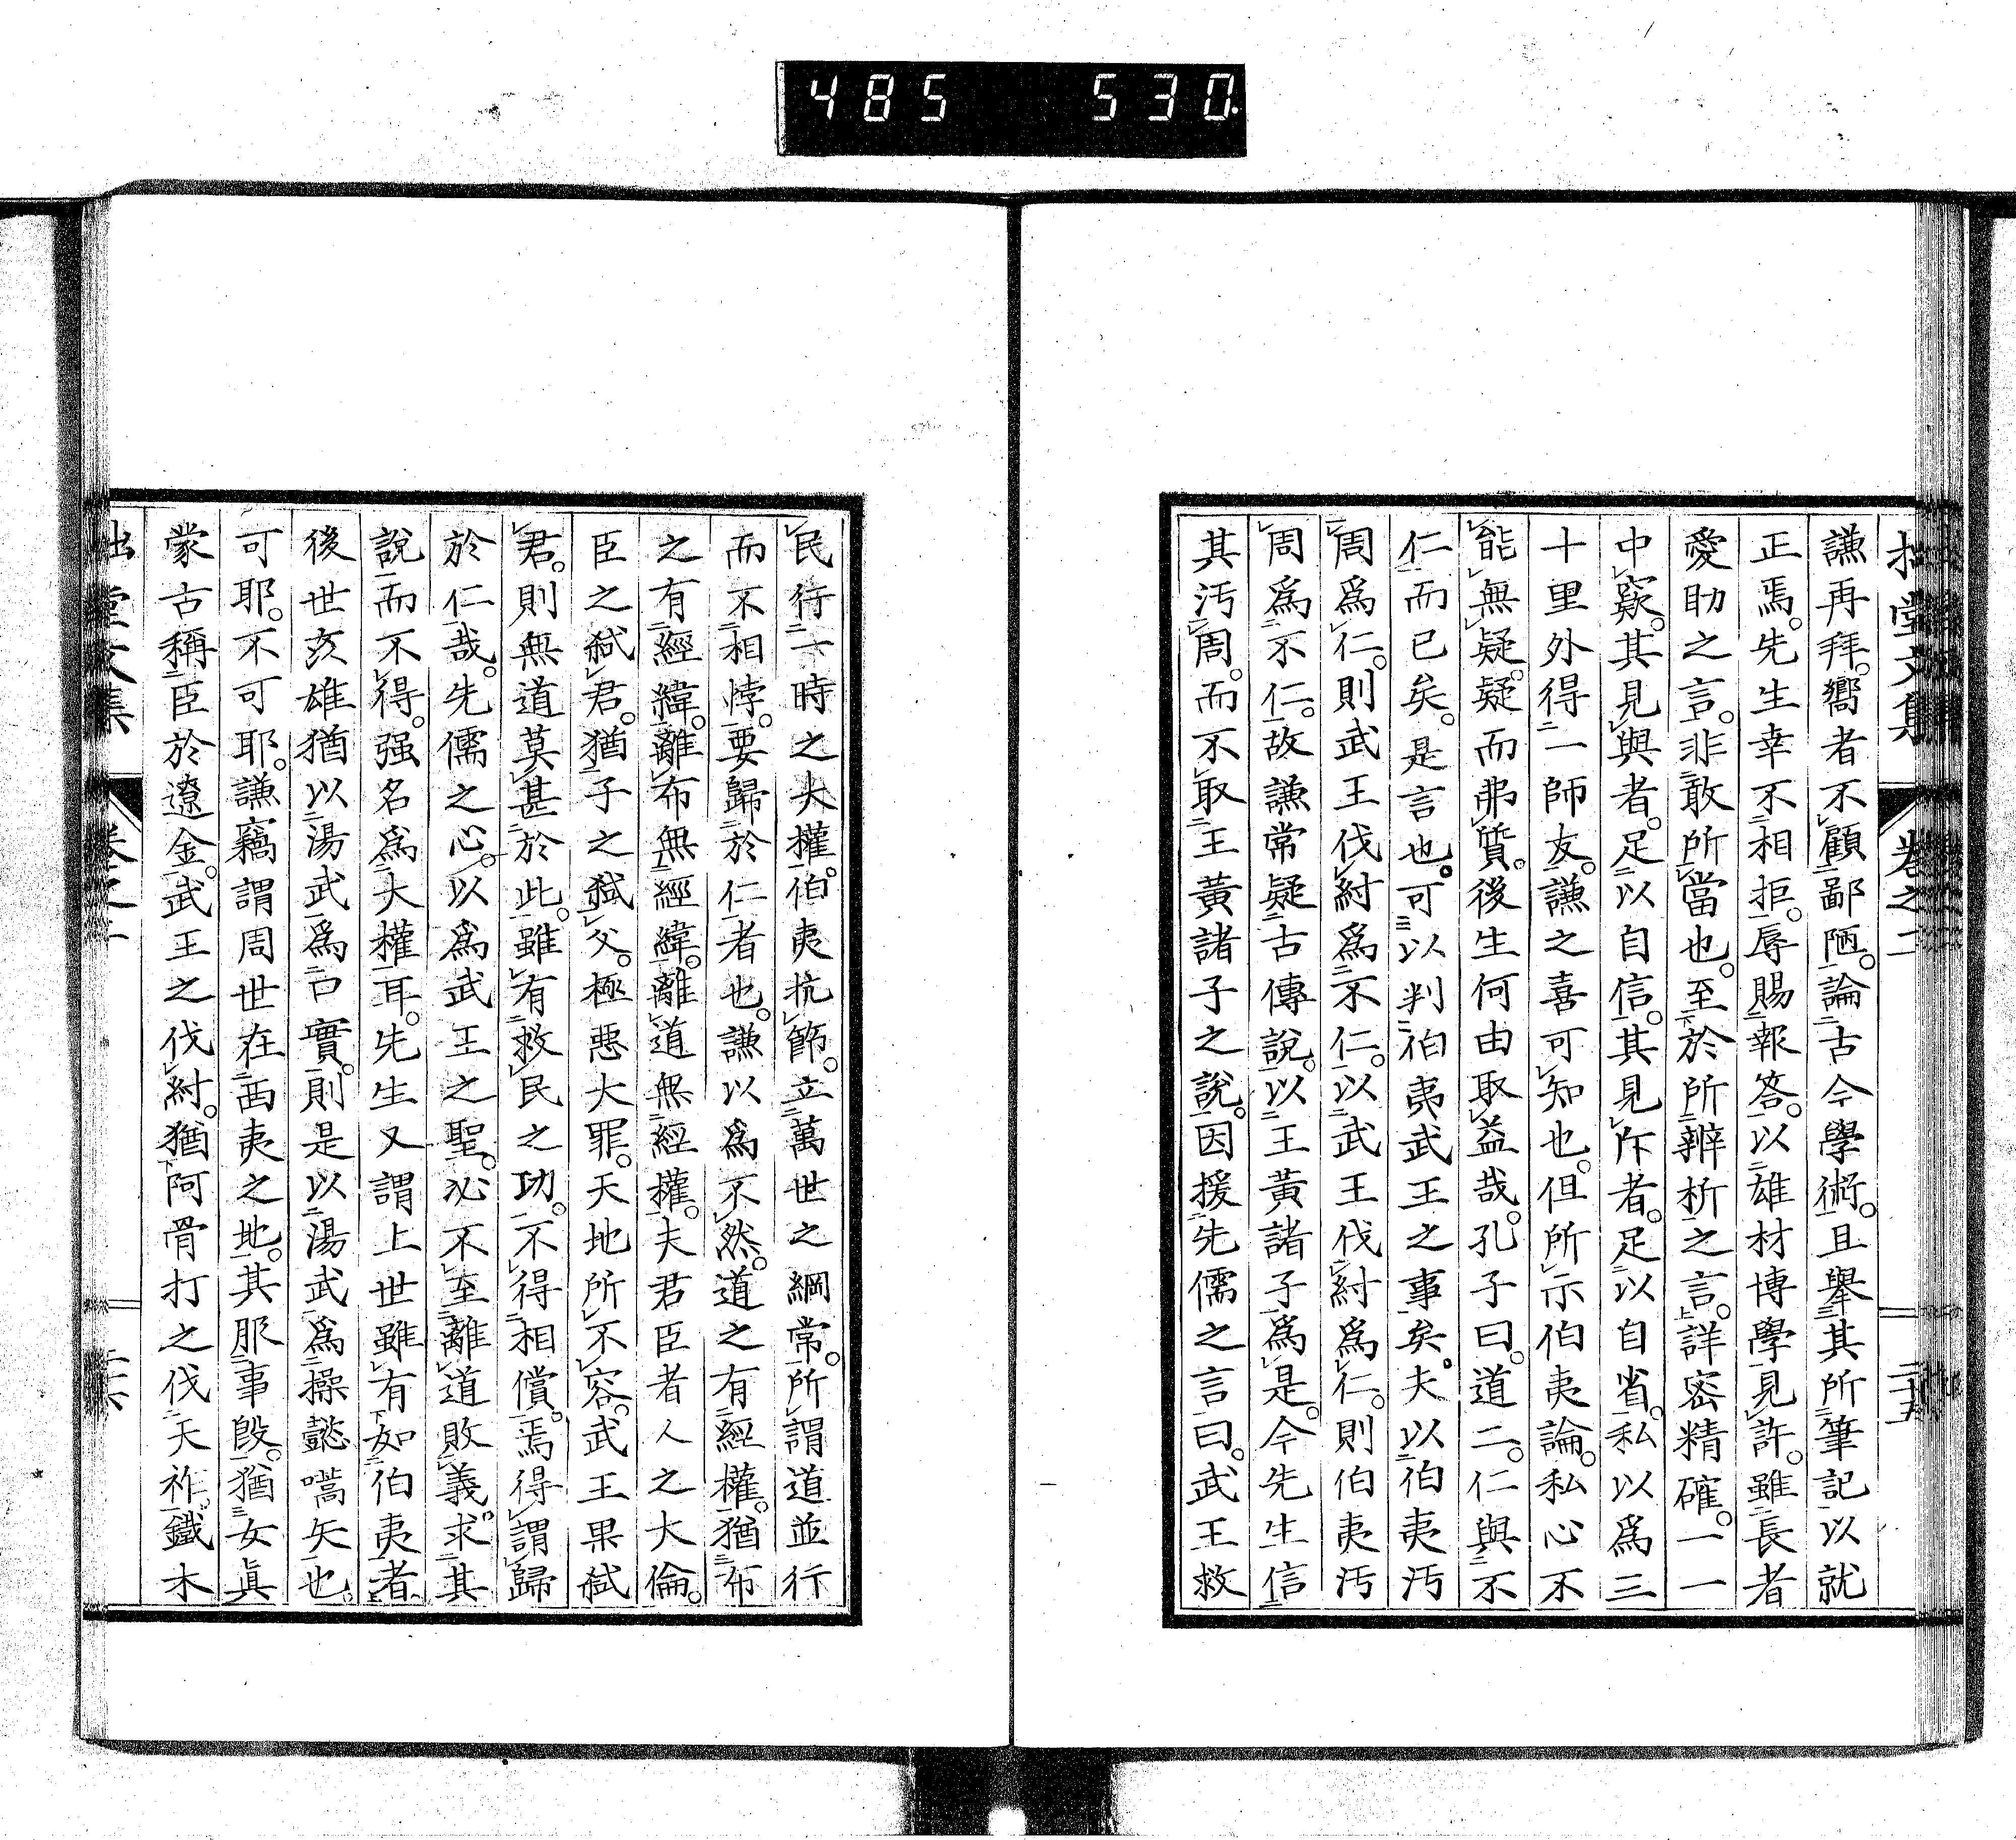 485 530.
拙堂文集 卷之二 二十五
謙再拜。嚮者不顧鄙陋。論古今學術。且舉其所筆記以就
正焉。先生幸不相拒。辱賜報答。以雄材博學見許。雖長者
愛助之言。非敢所當也。至於所辨析之言。詳密精確。一一
中窾。其見與者。足以自信。其見斥者。足以自省。私以爲三
十里外得一師友。謙之喜可知也。但所示伯夷論。私心不
能無疑。疑而弗質。後生何由取益哉。孔子曰。道二。仁與不
仁而已矣。是言也。可以判伯夷武王之事矣。夫以伯夷汚
周爲仁。則武王伐紂爲不仁。以武王伐紂爲仁。則伯夷汚
周爲不仁。故謙常疑古傳說。以王黃諸子爲是。今先生信
其汚周。而不取王黃諸子之說。因援先儒之言曰。武王救
民行一時之大權。伯夷抗節。立萬世之綱常。所謂道並行
而不相悖。要歸於仁者也。謙以爲不然。道之有經權。猶布
之有經緯。離布無經緯。離道無經權。夫君臣者人之大倫。
臣之弑君。猶子之弑父。極惡大罪。天地所不容。武王果弑
君。則無道莫甚於此。雖有救民之功。不得相償。焉得謂歸
於仁哉。先儒之心。以爲武王之聖。必不至離道敗義。求其
說而不得。强名爲大權耳。先生又謂上世雖有如伯夷者。
後世亥雄猶以湯武爲口實。則是以湯武爲操懿嚆矢也。
可耶。不可耶。謙竊謂周世在西夷之地。其服事殷。猶女眞
蒙古稱臣於遼金。武王之伐紂。猶阿骨打之伐天祚。鐵木
拙堂文集 卷之二 二十六